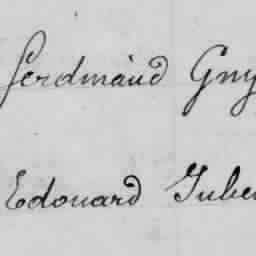 ferdinand Guy
Edouard Jube